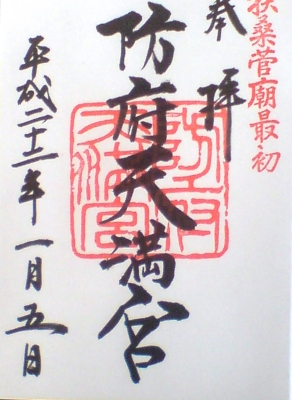 扶桑菅廟最初
奉拝
防府天満宮
平成二十二年一月五日